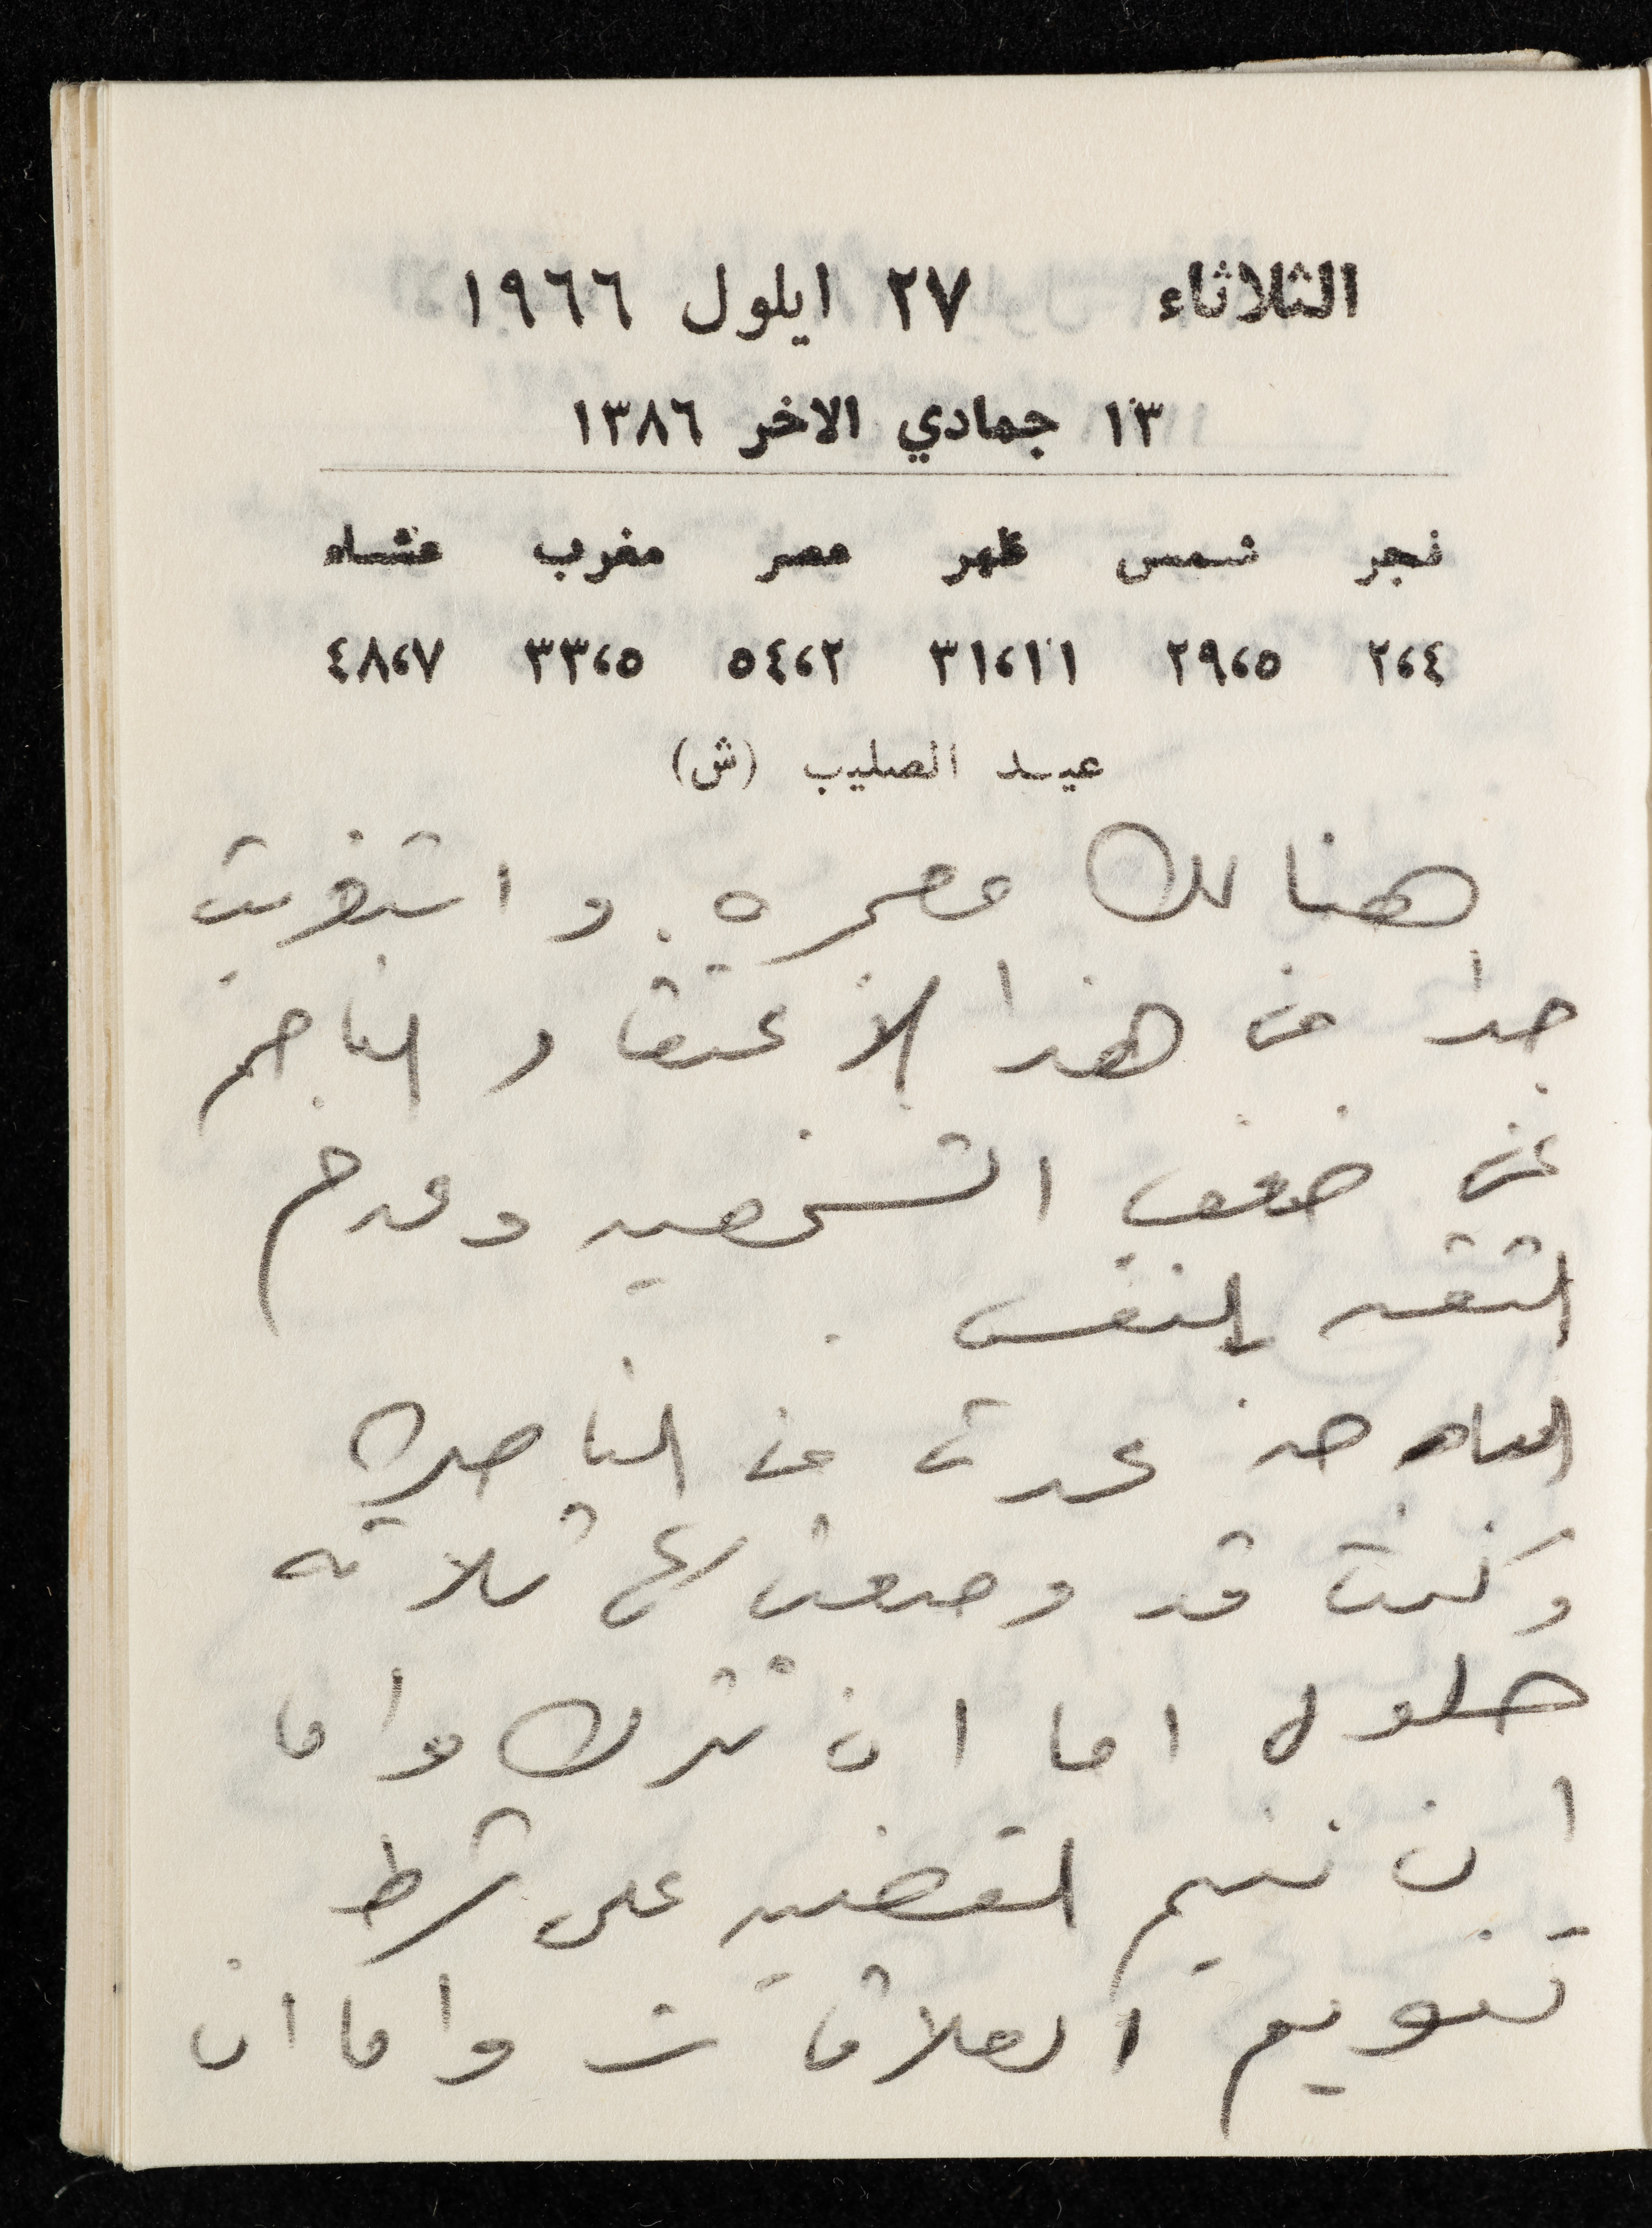 الثلاثاء ٢٧ ايلول ١٩٦٦
١٣ جمادي الاخر ١٣٨٦
فجر شمس ظهر عصر مغرب عشاء
٢،٤ ٢٩،٥ ٣١،١١ ٥٤،٢ ٣٣،٥ ٤٨،٧
عيد الصليب (ش)
هنالك معجزه. واستغربت
جدا من هذا الاعتقاد الناجم
عن ضعف الشخصيه وعدم
الثقه بالنفس.
عدت من الناصره
وكنت قد وضعت ثلاثه
حلول اما ان نترك واما
ان ننيم القضيه على شرط
تنويم العلاقات واما ان